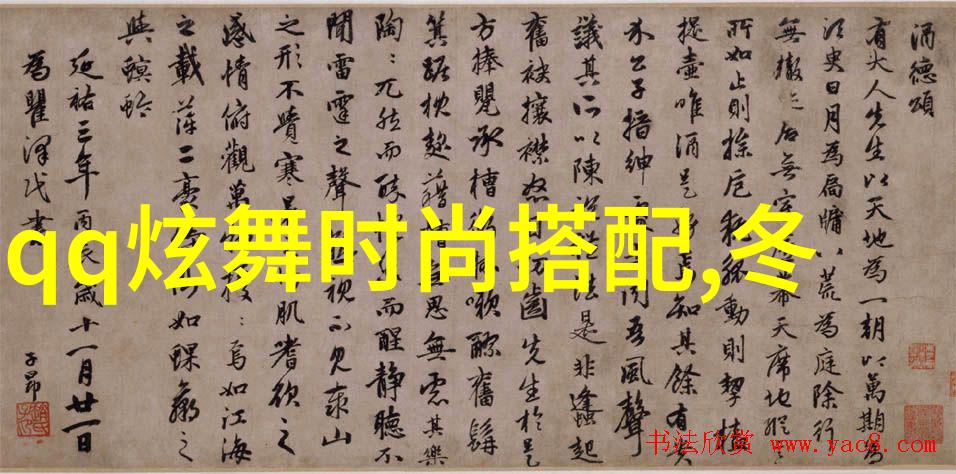 酒德頌
有大人先生以天地為一朝以萬期為
須臾日月為扃牖八荒為庭除行
無轍迹居無室廬幕天席地縱
所如止則操卮執觚動則挈榼
提壺唯酒是務焉知其餘有貴
介公子搢紳處士聞吾風聲
議其所以陳說禮法是非蠭起
奮袂攘襟怒目切齒先生於是
方捧甖承槽銜杯嗽醪奮髯
箕踞枕麴藉糟無思無慮其樂
陶〻兀然而醉而醒靜聽不
聞雷霆之聲視不見泰山
之形不覺寒暑肌嗜欲之
感情俯觀萬物擾〻焉如江海
之載萍二豪侍側如蜾蠃之
與螟蛉
延祐三年丙辰歲十一月廿一日
為瞿澤民書
子昂
qq炫舞时尚搭配,冬
书法欣赏 www.yac8.com